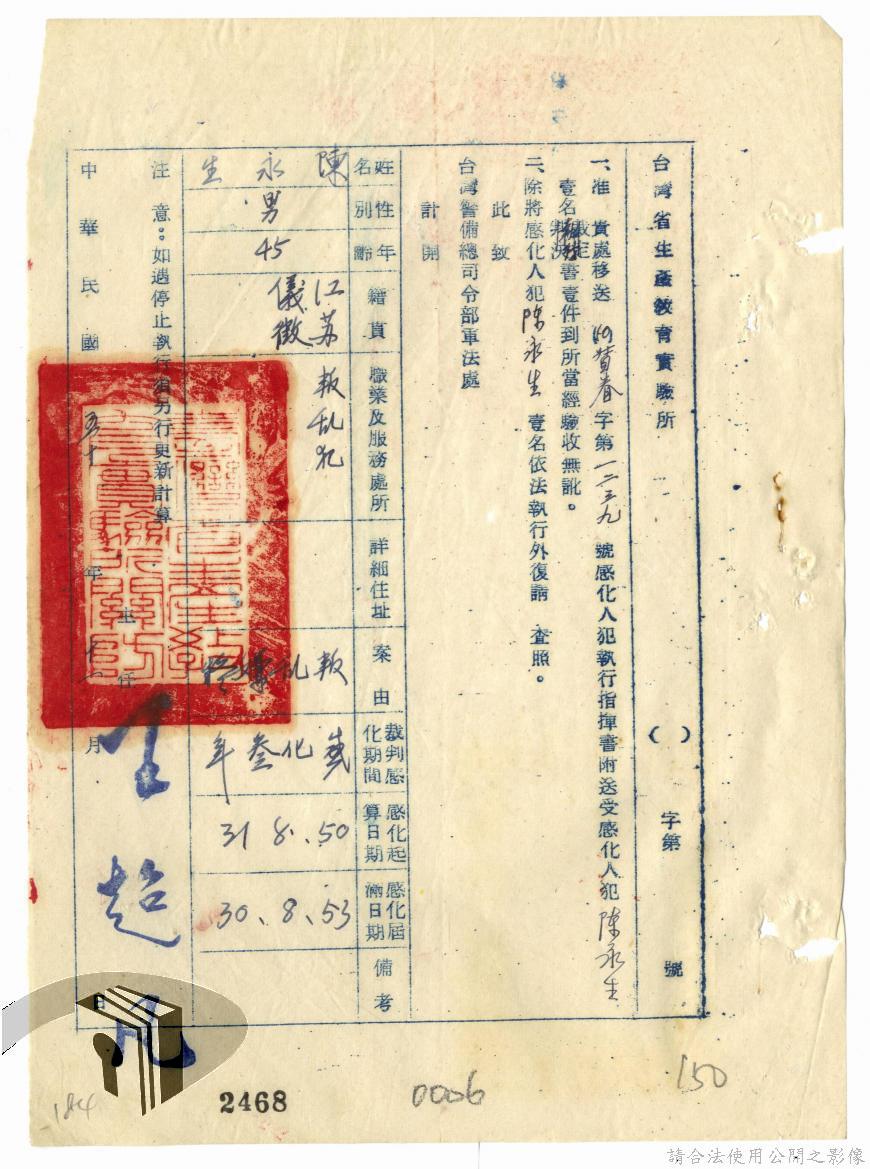 台灣省生產教育實驗所 ( ) 字第 號
一、准 貴處移送 字第一二三九號感化人犯執行指揮書附送受感化人犯陳永生
壹名 裁定書壹件到所當經驗收無訛。
二、除將感化人犯陳永生壹名依法執行外復請 查照。
此致
台灣警備總司令部軍法處
計開
姓名 性別 年齡 籍貫 職業及服務處所 詳細住址 案由 裁判感化期間 感化起算日期 感化屆滿日期 備考
陳永生 男 45 江苏儀徵 叛乱犯 叛乱嫌疑 感化叁年 50、8、31 53、8、30
注意:如遇停止執行須另行更新計算
主任 王超凡
中華民國五十年十一月 日
184
2468
0006
150
請合法使用公開之影像